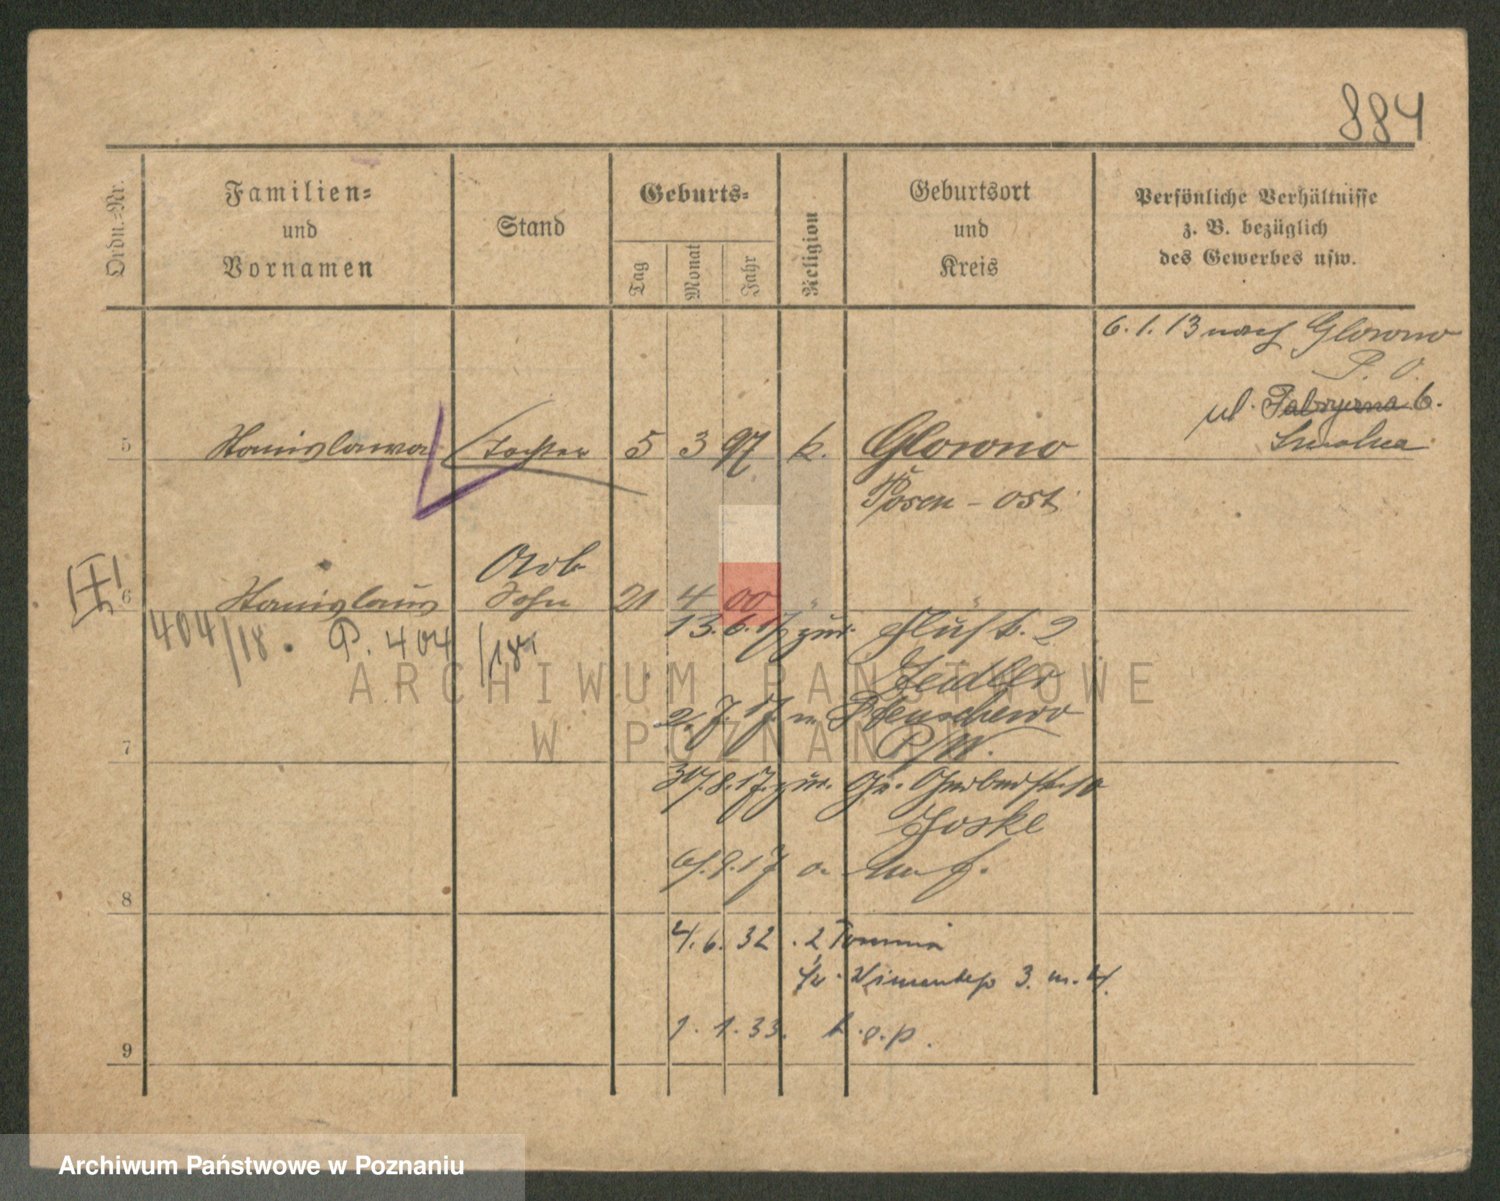 884
Ordn.-Nr.
Familien-
und
Vornamen
Stand
Geburts-
Tag
Monat
Jahr
Religion
Geburtsort
und
Kreis
Persönliche Verhältnisse
z. B. bezüglich
des Gewerbes usw.
6. 1. 13 nach Glowno
P. O.
ul. Fabryczna 6.
Smolna
5 Stanislawa Tochter 5 3 97 k. Glowno
Posen - ost
Arb.
6 Stanislaus Sohn 21 4 00 "
404/18. P. 404/18
13. 6. 17 zur.
Zeidler
2. 7. 17 n.
P/W.
7
30/8. 17. zur. Gr. Gerberstr. 10
Joske
6/9. 17
8
4. 6. 32
3 m. 4.
1. 1. 33.
9
ARCHIWUM PAŃSTWOWE
W POZNANIU
Archiwum Państwowe w Poznaniu